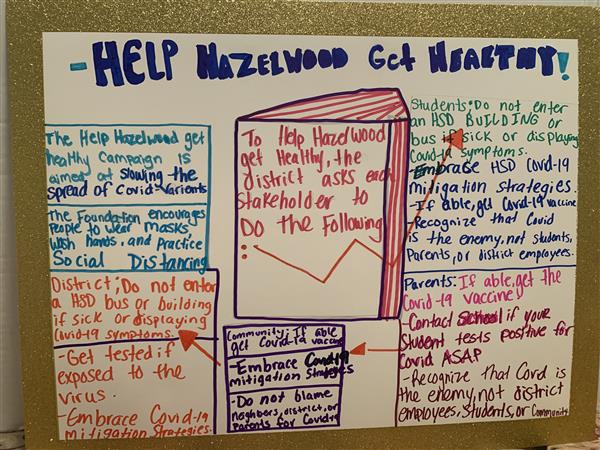 -HELP HAZELWOOD Get HEALTHY!
The Help Hazelwood get
healthy Campaign is
aimed at slowing the
spread of Covid-Variants
The Foundation encourages
People to wear Masks,
Wash hands, and Practice
Social Distancing
District; Do not enter
a HSD bus or building
if sick or displaying
Covid-19 symptoms.
-Get tested if
exposed to the
virus.
-Embrace Covid-19
mitigation strategies.
To Help Hazelwood
get Healthy, the
district asks each
Stakeholder to
Do the Following
:
Community; If able
get Covid-19 vaccine
-Embrace Covid-19
mitigation strategies
-Do not blame
neighbors, district, or
Parents for Covid-19
Students: Do not enter
an HSD BUILDING or
bus if sick or displaying
Covid-19 symptoms.
-Embrase HSD Covid-19
mitigation strategies.
-If able, get Covid-19 vaccine
-Recognize that Covid
is the enemy, not students,
Parents, or district employees.
Parents: If able, get the
Covid-19 vaccine
-Contact School if your
Student tests positive for
Covid ASAP
-Recognize that Covid is
the enemy, not district
employees, Students, or Community